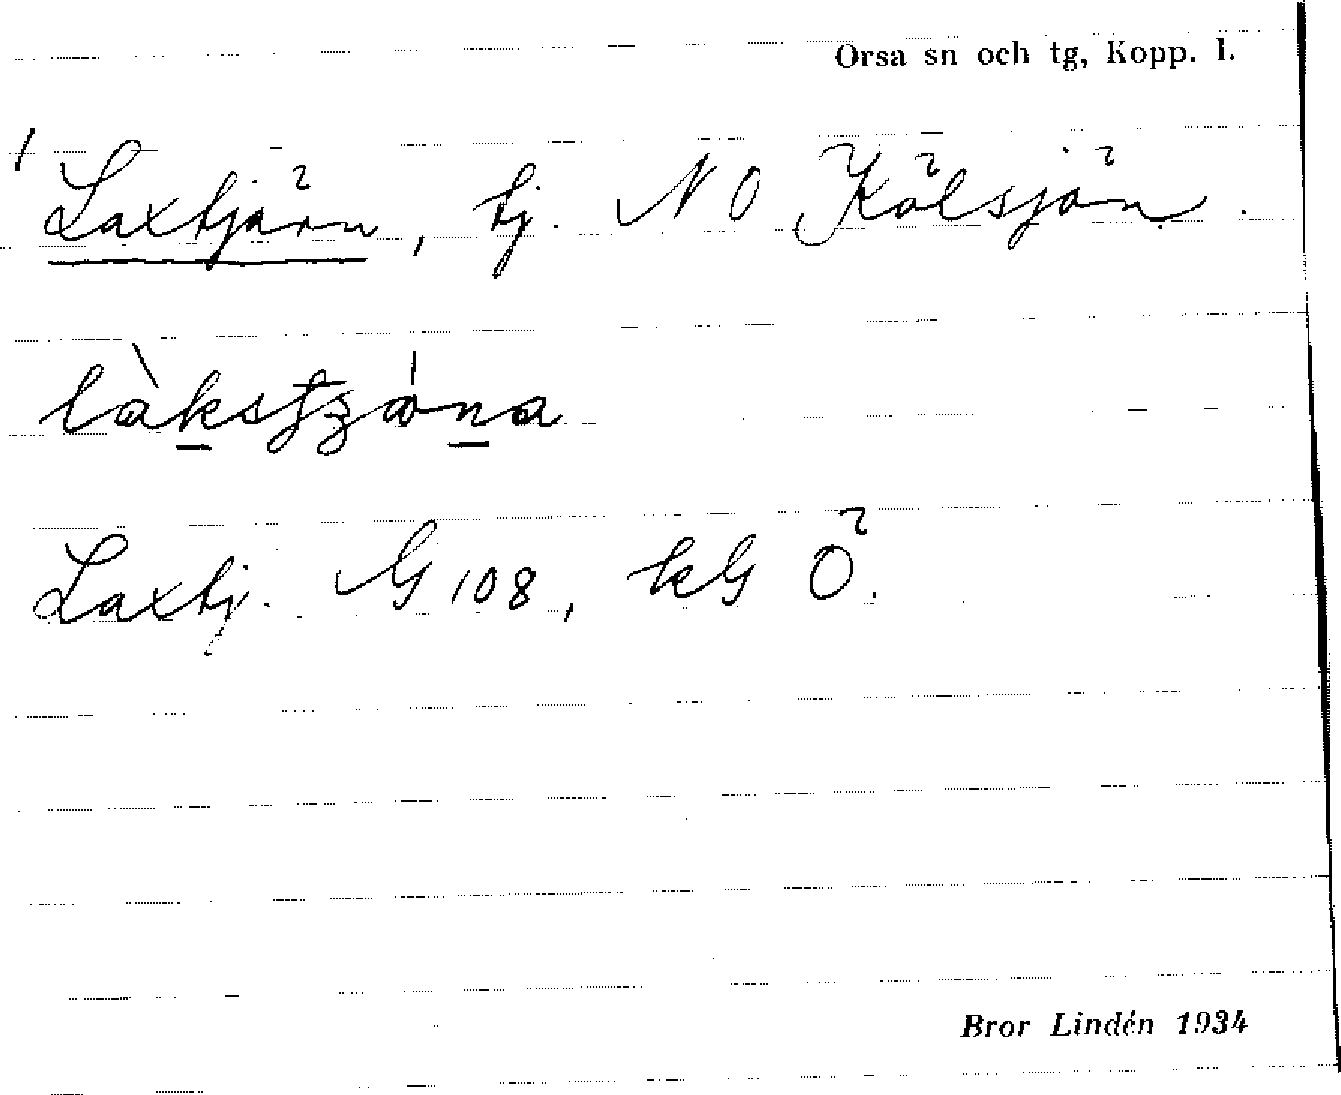 Orsa sn och tg, Kopp. l.
Laxtjärn, tj. NO Kölsjön.
Laxtj. G 108, kG Ö.
Bror Lindén 1934